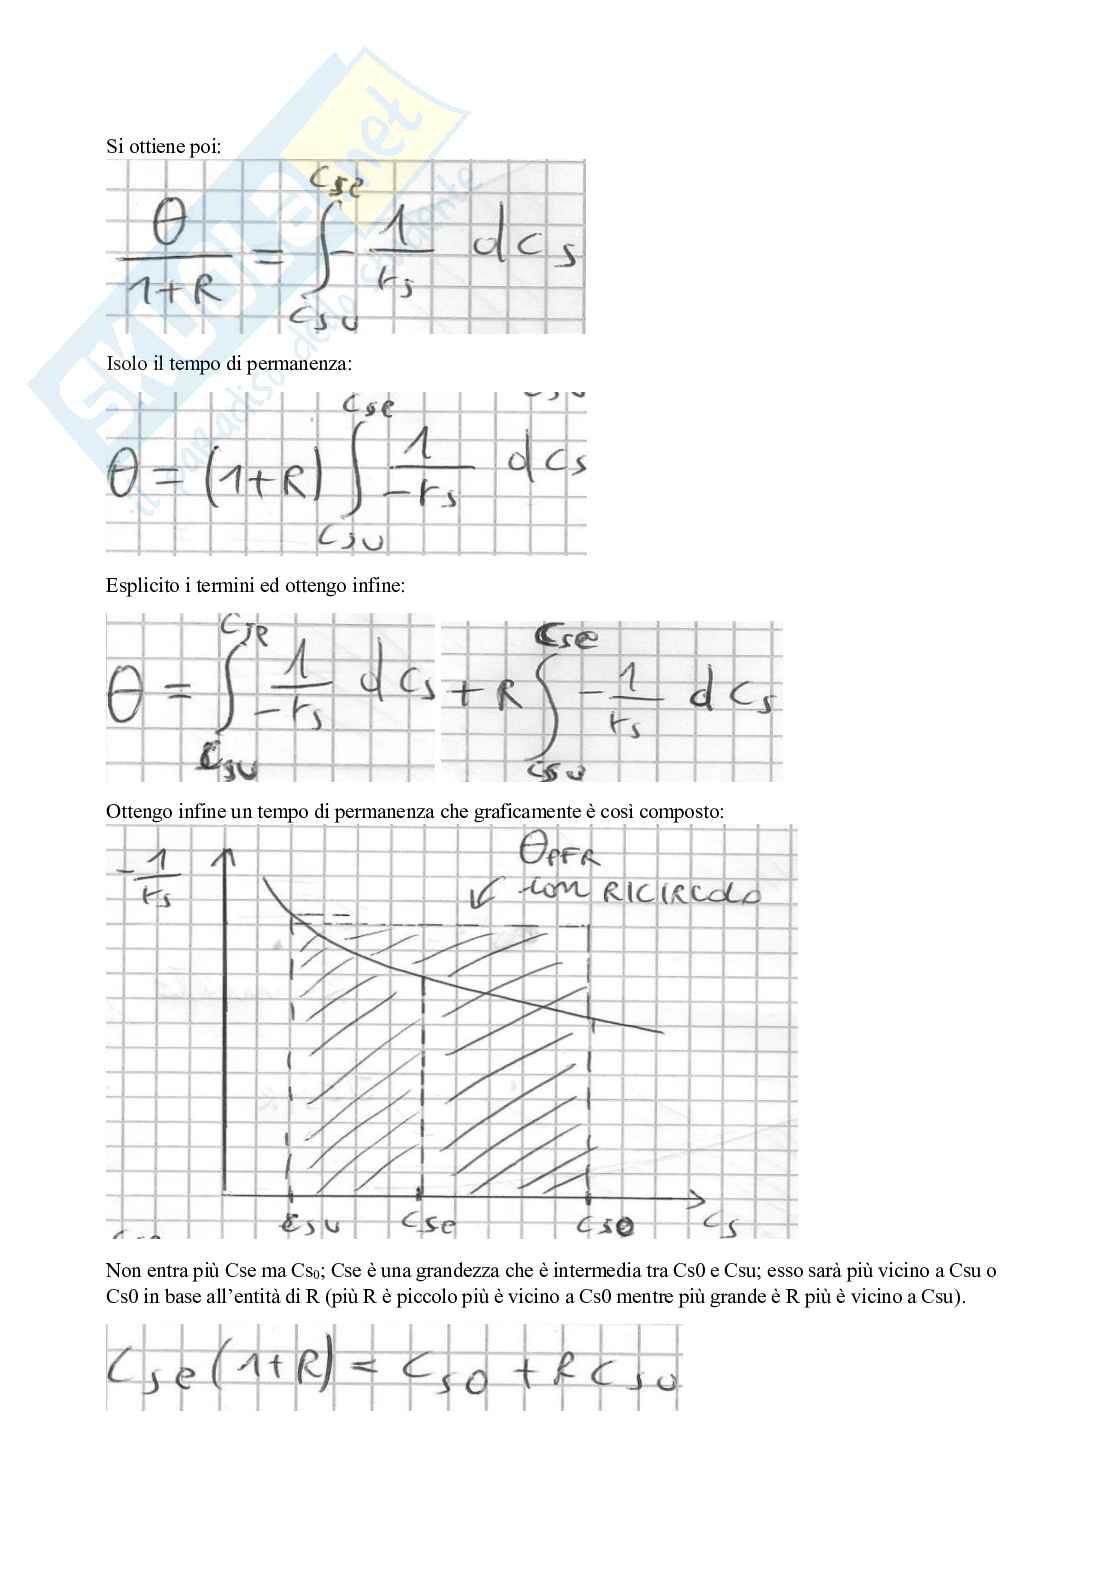 Si ottiene poi:
θ/(1+R) = ∫_{Csu}^{Cse} - 1/rs dCs
Isolo il tempo di permanenza:
θ = (1+R) ∫_{Csu}^{Cse} 1/-rs dCs
Esplicito i termini ed ottengo infine:
θ = ∫_{Csu}^{Cse} 1/-rs dCs + R ∫_{Csu}^{Cse} - 1/rs dCs
Ottengo infine un tempo di permanenza che graficamente è così composto:
- 1/rs
θPFR
con RICIRCOLO
Csu Cse Cs0 Cs
Non entra più Cse ma Cs₀; Cse è una grandezza che è intermedia tra Cs0 e Csu; esso sarà più vicino a Csu o
Cs0 in base all’entità di R (più R è piccolo più è vicino a Cs0 mentre più grande è R più è vicino a Csu).
Cse (1+R) = Cs0 + R Csu
SKUOLA.net
il paradiso dello studente